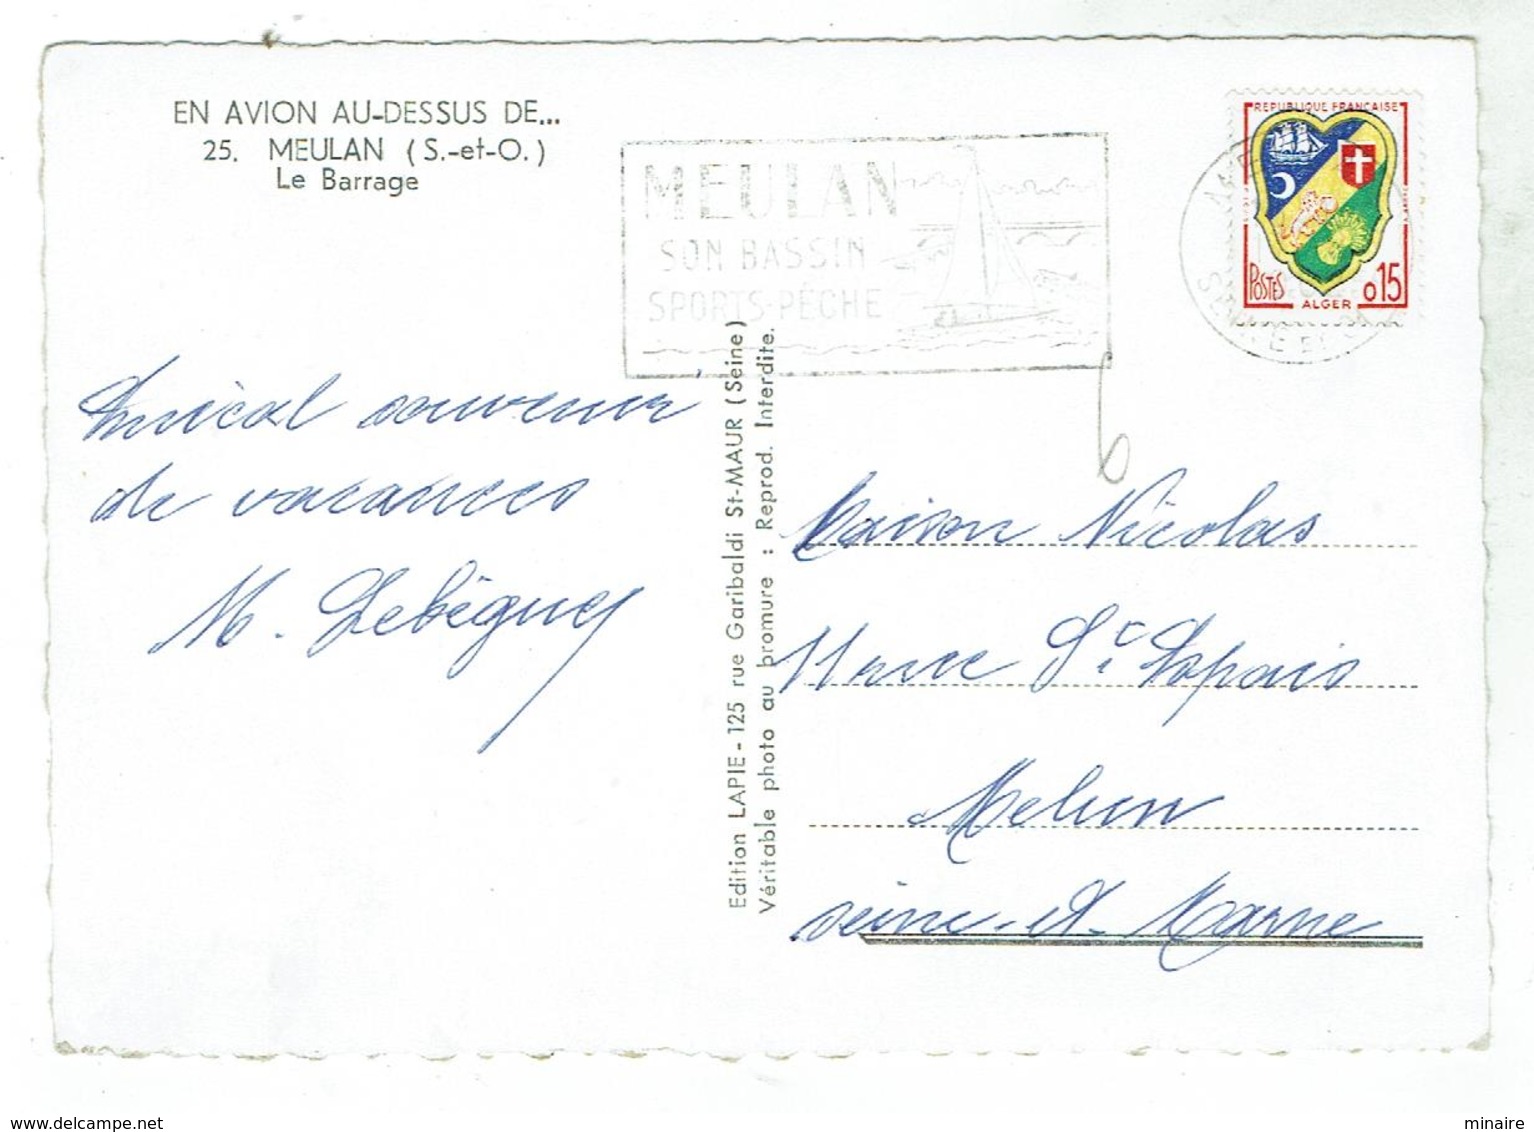 EN AVION AU-DESSUS DE...
25. MEULAN (S.-et-O.)
Le Barrage
MEULAN
SON BASSIN
SPORTS-PÊCHE
REPUBLIQUE FRANÇAISE
POSTES
ALGER
0,15
Amical souvenir
de vacances
M. Lebéguey
Edition LAPIE - 125 rue Garibaldi St-MAUR (Seine)
Véritable photo au bromure : Reprod. Interdite.
6
Maison Nicolas
Place St
Melun
Seine-et-Marne
delcampe.net
minaire